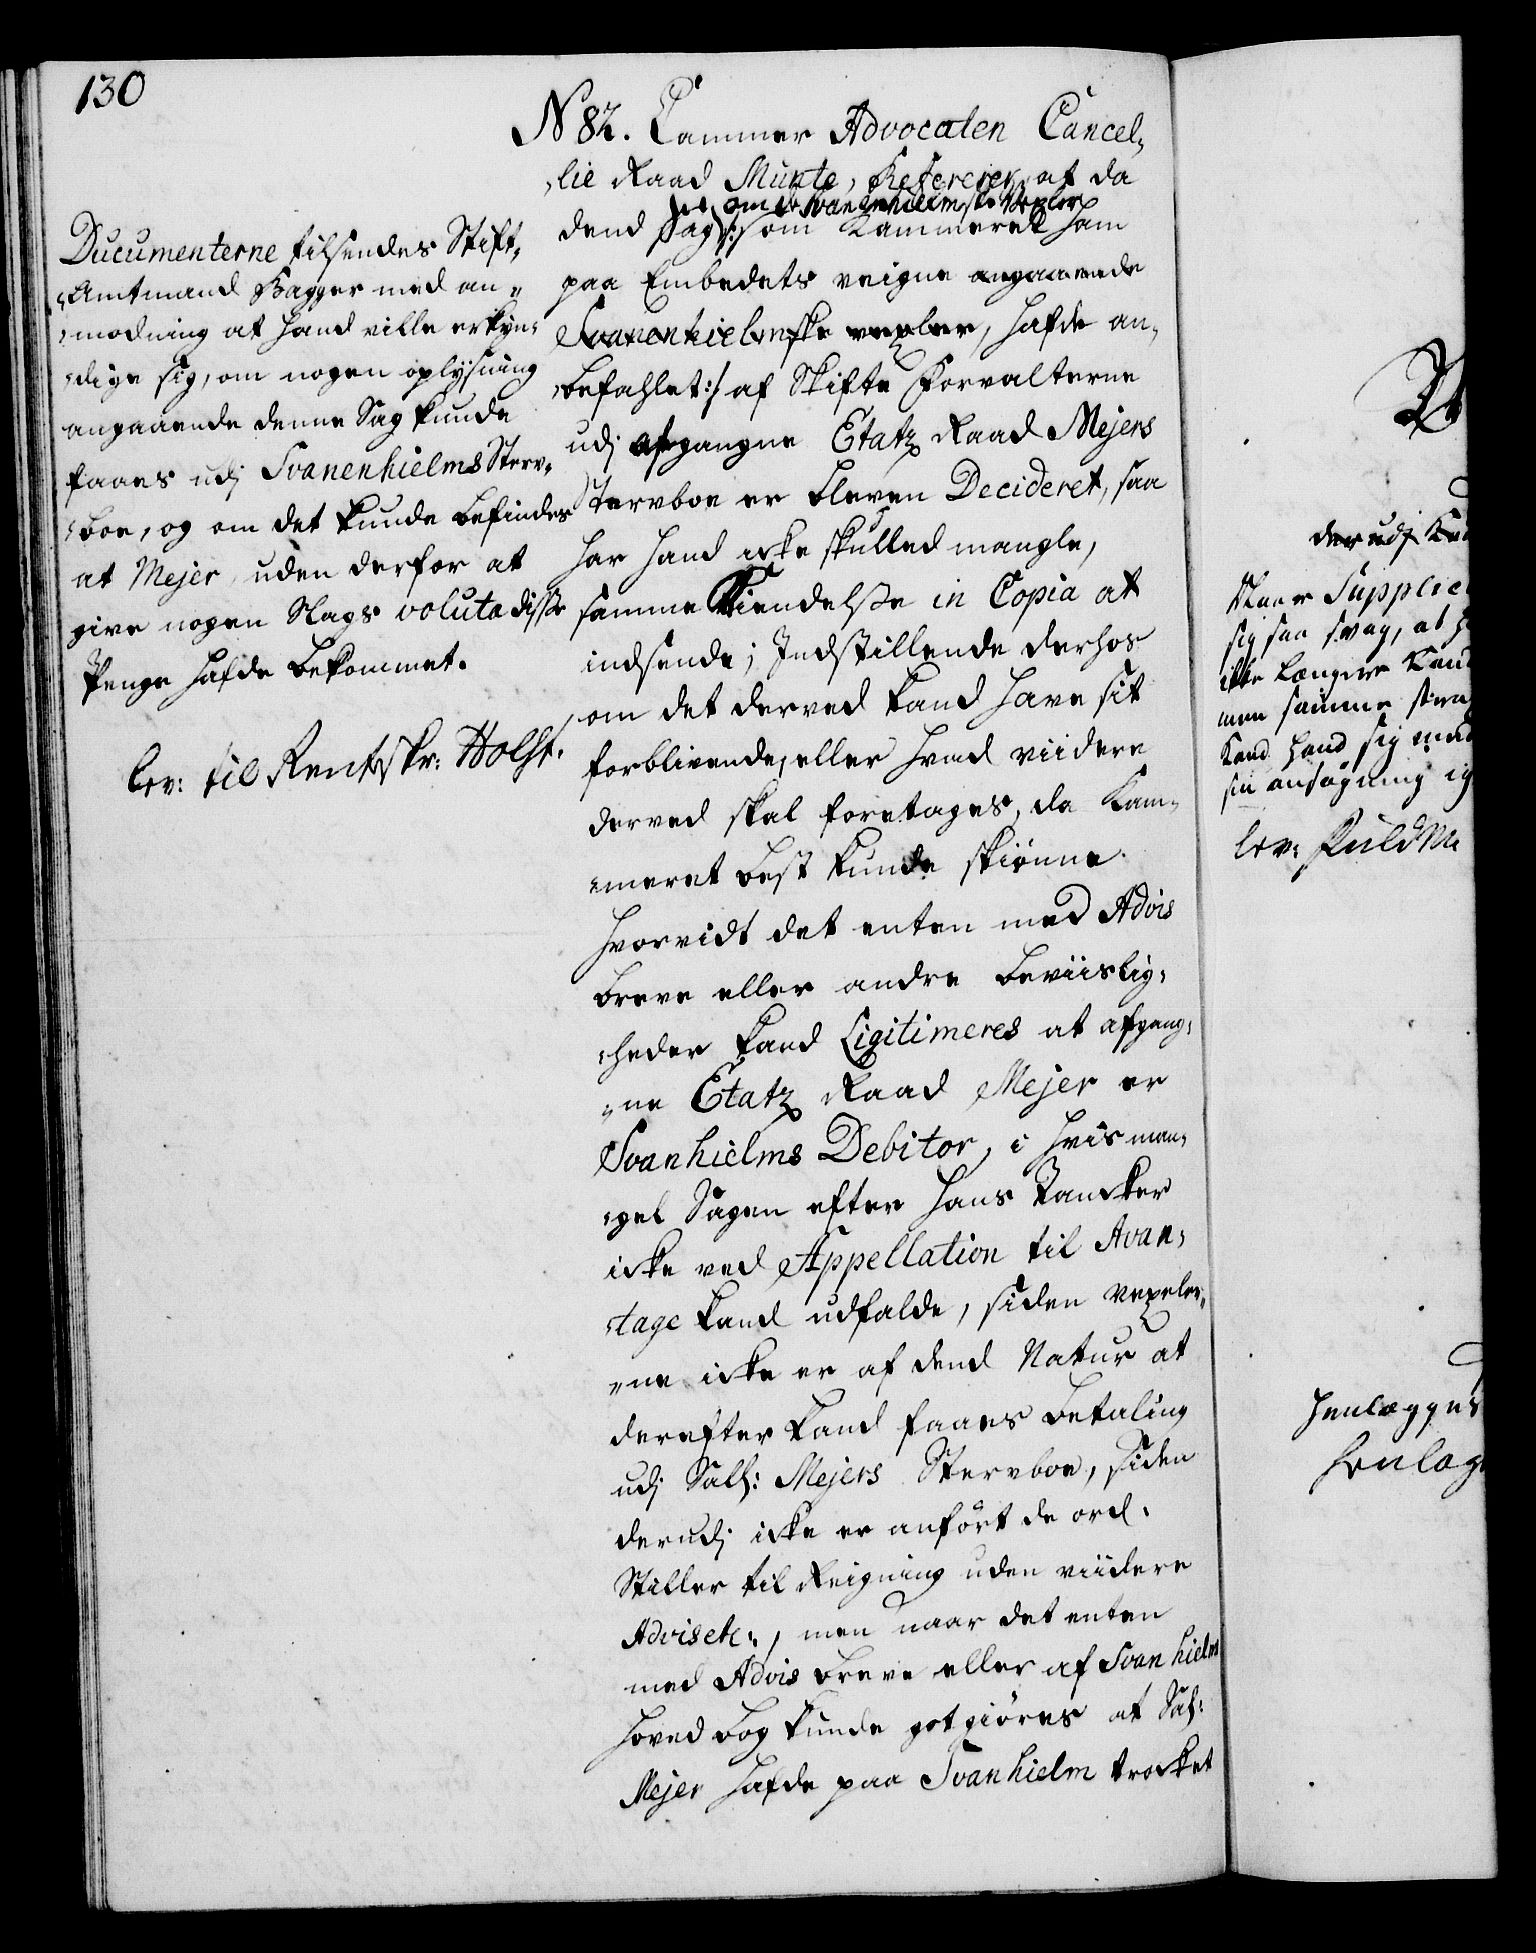 130
N 82. Cammer Advocaten Cancel„
„lie Raad Munte, Refererer, at da
om de Svanenhielmske Vexler
dend Sag /: som Kammeret ham
paa Embedets veigne angaaende
Svanenhielmske vexler, hafde an„
„befahlet :/ af Skifte Forvalterne
udj afgangne Etatz Raad Mejers
Stervboe er bleven Decideret, saa
har hand icke skulled mangle,
samme Kiendelsse in Copia at
indsende; Indstillende derhos
om det derved kand have sit
forblivende, eller hvad viidere
derved skal foretages, da Kam„
„meret best kunde skiønne
hvorvidt det enten med Advis
breve eller andre beviislig„
„heder kand Ligitimeres at afgang„
„ne Etatz Raad Mejer er
Svanhielms Debitor, i hvis man„
„gel Sagen efter hans Tancker
icke ved Appellation til Avan„
„tage kand udfalde, siden vexeler„
„ne icke er af dend Natur at
derefter kand faaes betaling
udj Salh: Mejers Stervboe, siden
derudj icke er anført de ord:
Stiller til Reigning uden viidere
Advis etc:, men naar det enten
med Advis breve eller af Svanhielms
hoved bog kunde gotgiøres at Sal:
Mejer hafde paa Svanhielm trocket
Ducumenterne tilsendes Stift„
„Amtmand Bagger med an„
„modning at hand ville erkyn„
„dige sig, om nogen oplysning
angaaende denne Sag kunde
faaes udj Svanenhielms Sterv„
„boe, og om det kunde befindes
at Mejer, uden derfor at
give nogen Slags voluta disse
Penge hafde bekommet.
lev: til Rentskr: Holst.
derudj
Naar Supplic
sig saa svag, at h
icke længere kand
men samme
kand hand sig med
sin ansøgning ig
lev:
henlægges
henlag